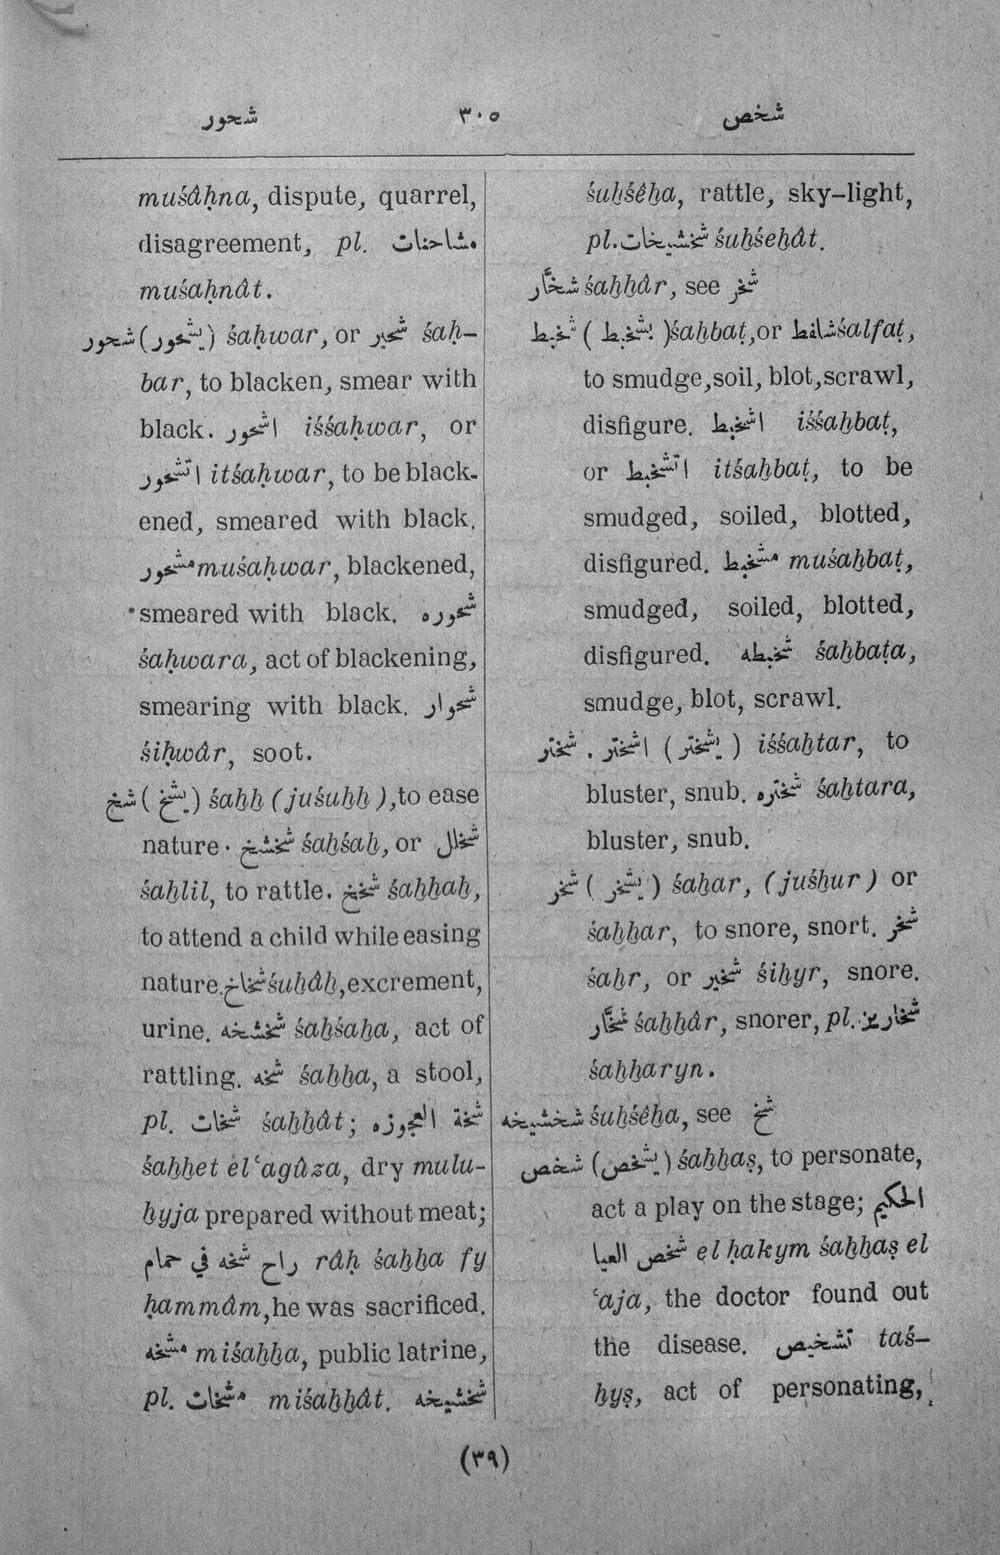 شحور ٣٠٥ شخص
muśâḥna, dispute, quarrel,
disagreement, pl. مشاحنات
muśaḥnât.
شحور (يشحور) śaḥwar, or شحبر śaḥ-
bar, to blacken, smear with
black. اشحور iśśaḥwar, or
اتشحور itśaḥwar, to be black-
ened, smeared with black.
مشحور muśaḥwar, blackened,
smeared with black. شحوره
śaḥwara, act of blackening,
smearing with black. شحوار
śiḥwâr, soot.
شخ (يشخ) śaḫḫ (juśuḫḫ), to ease
nature. شخشخ śaḫśaḫ, or شخلل
śaḫlil, to rattle. شخخ śaḫḫaḫ,
to attend a child while easing
nature. شخاخ śuḫâḫ, excrement,
urine. شخشخه śaḫśaḫa, act of
rattling. شخه śaḫḫa, a stool,
pl. شخات śaḫḫât; شخة العجوزه
śaḫḫet elʿagûza, dry mulu-
ḫyja prepared without meat;
راح شخه في حمام râḥ śaḫḫa fy
ḥammâm, he was sacrificed.
مشخه miśaḫḫa, public latrine,
pl. مشخات miśaḫḫât. شخشيخه
śuḫśêḫa, rattle, sky-light,
pl. شخشيخات śuḫśeḫât.
شخَّار śaḫḫâr, see شخر
شخبط (يشخبط) śaḫbaṭ, or شلفط śalfaṭ,
to smudge, soil, blot, scrawl,
disfigure. اشخبط iśśaḫbaṭ,
or اتشخبط itśaḫbaṭ, to be
smudged, soiled, blotted,
disfigured. مشخبط muśaḫbaṭ,
smudged, soiled, blotted,
disfigured. شخبطه śaḫbaṭa,
smudge, blot, scrawl.
شختر . اشختر (يشختر) iśśaḫtar, to
bluster, snub. شختره śaḫtara,
bluster, snub.
شخر (يشخر) śaḫar, (juśḫur) or
śaḫḫar, to snore, snort. شخر
śaḫr, or شخير śiḫyr, snore.
شخَّار śaḫḫâr, snorer, pl. شخارين
śaḫḫaryn.
شخشيخه śuḫśêḫa, see شخ
شخص (يشخص) śaḫḫaṣ, to personate,
act a play on the stage; الحكيم
شخص العيا el ḥakym śaḫḫaṣ el
ʿaja, the doctor found out
the disease. تشخيص taś-
ḫyṣ, act of personating,
(٣٩)